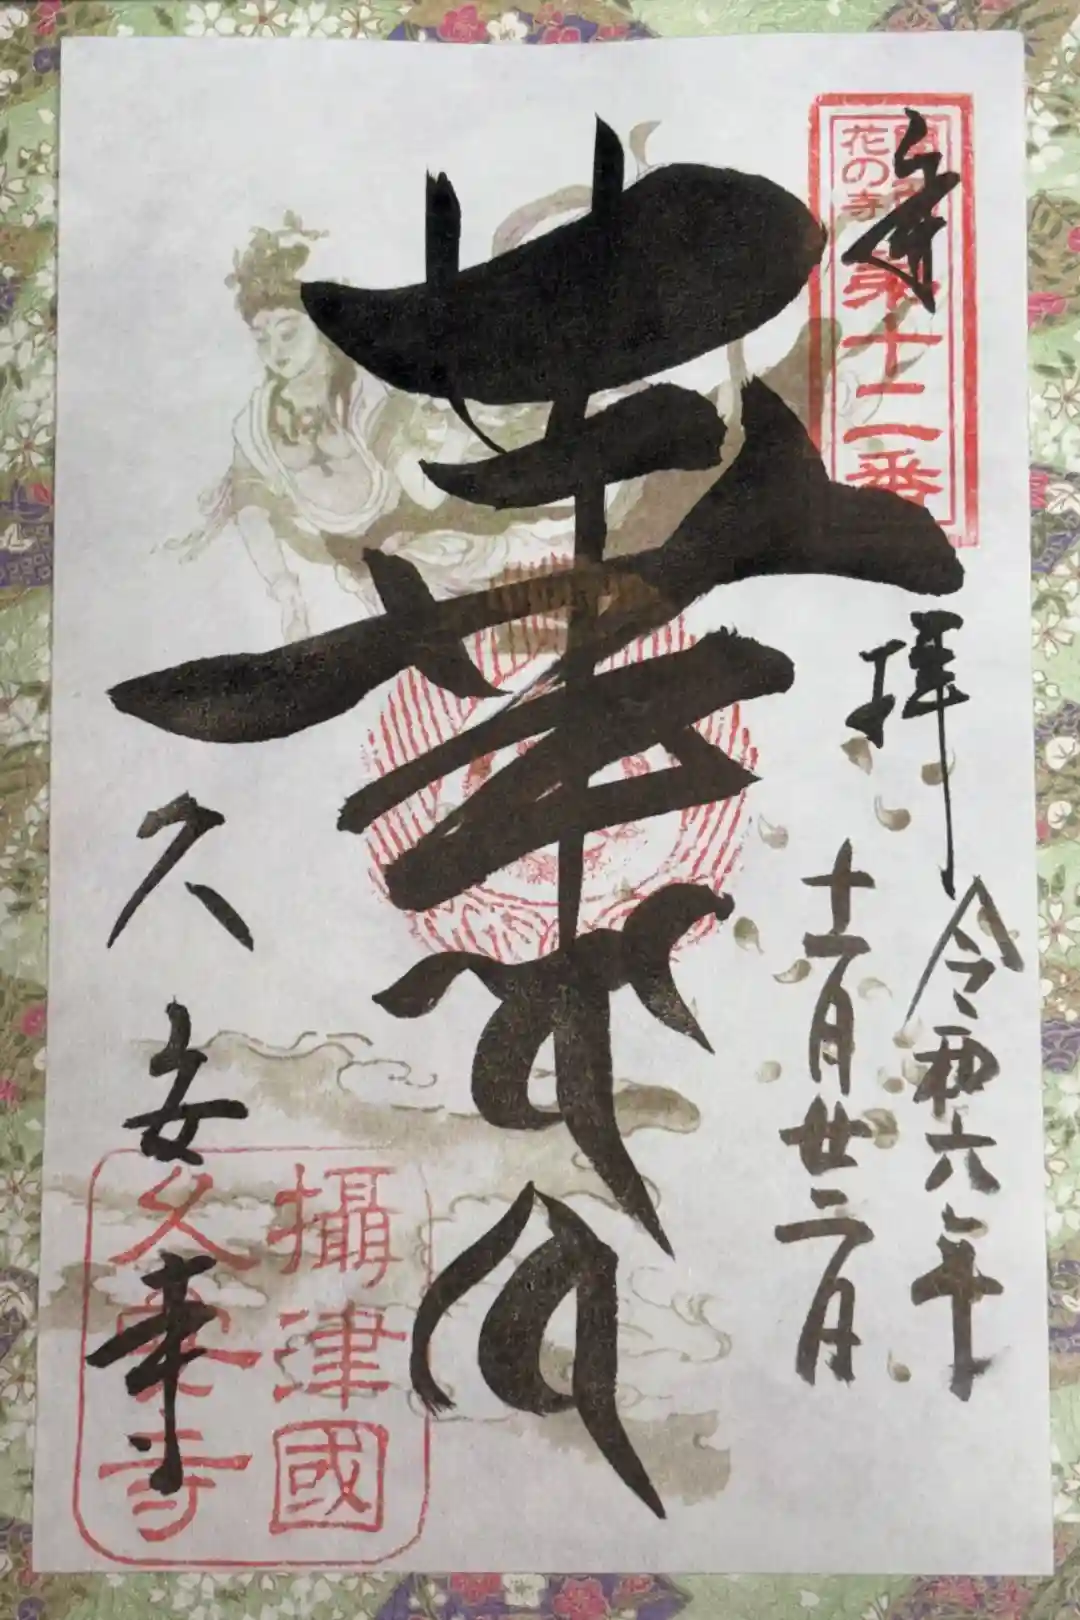 関西
花の寺
第十二番
奉拝
令和六年
十一月廿二日
久安寺
攝津國
久安寺